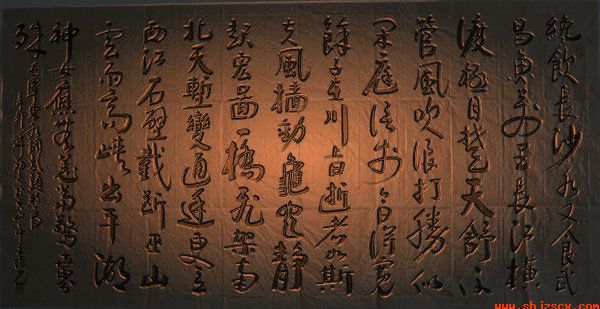 纔飲長沙水又食武
昌魚萬里長江橫
渡極目楚天舒不
管風吹浪打勝似
閒庭信步今日得寬
餘子在川上曰逝者如斯
夫風檣動龜蛇靜
起宏圖一橋飛架南
北天塹變通途更立
西江石壁截斷巫山
雲雨高峽出平湖
神女應無恙當驚世界
殊
www.shjzscx.com